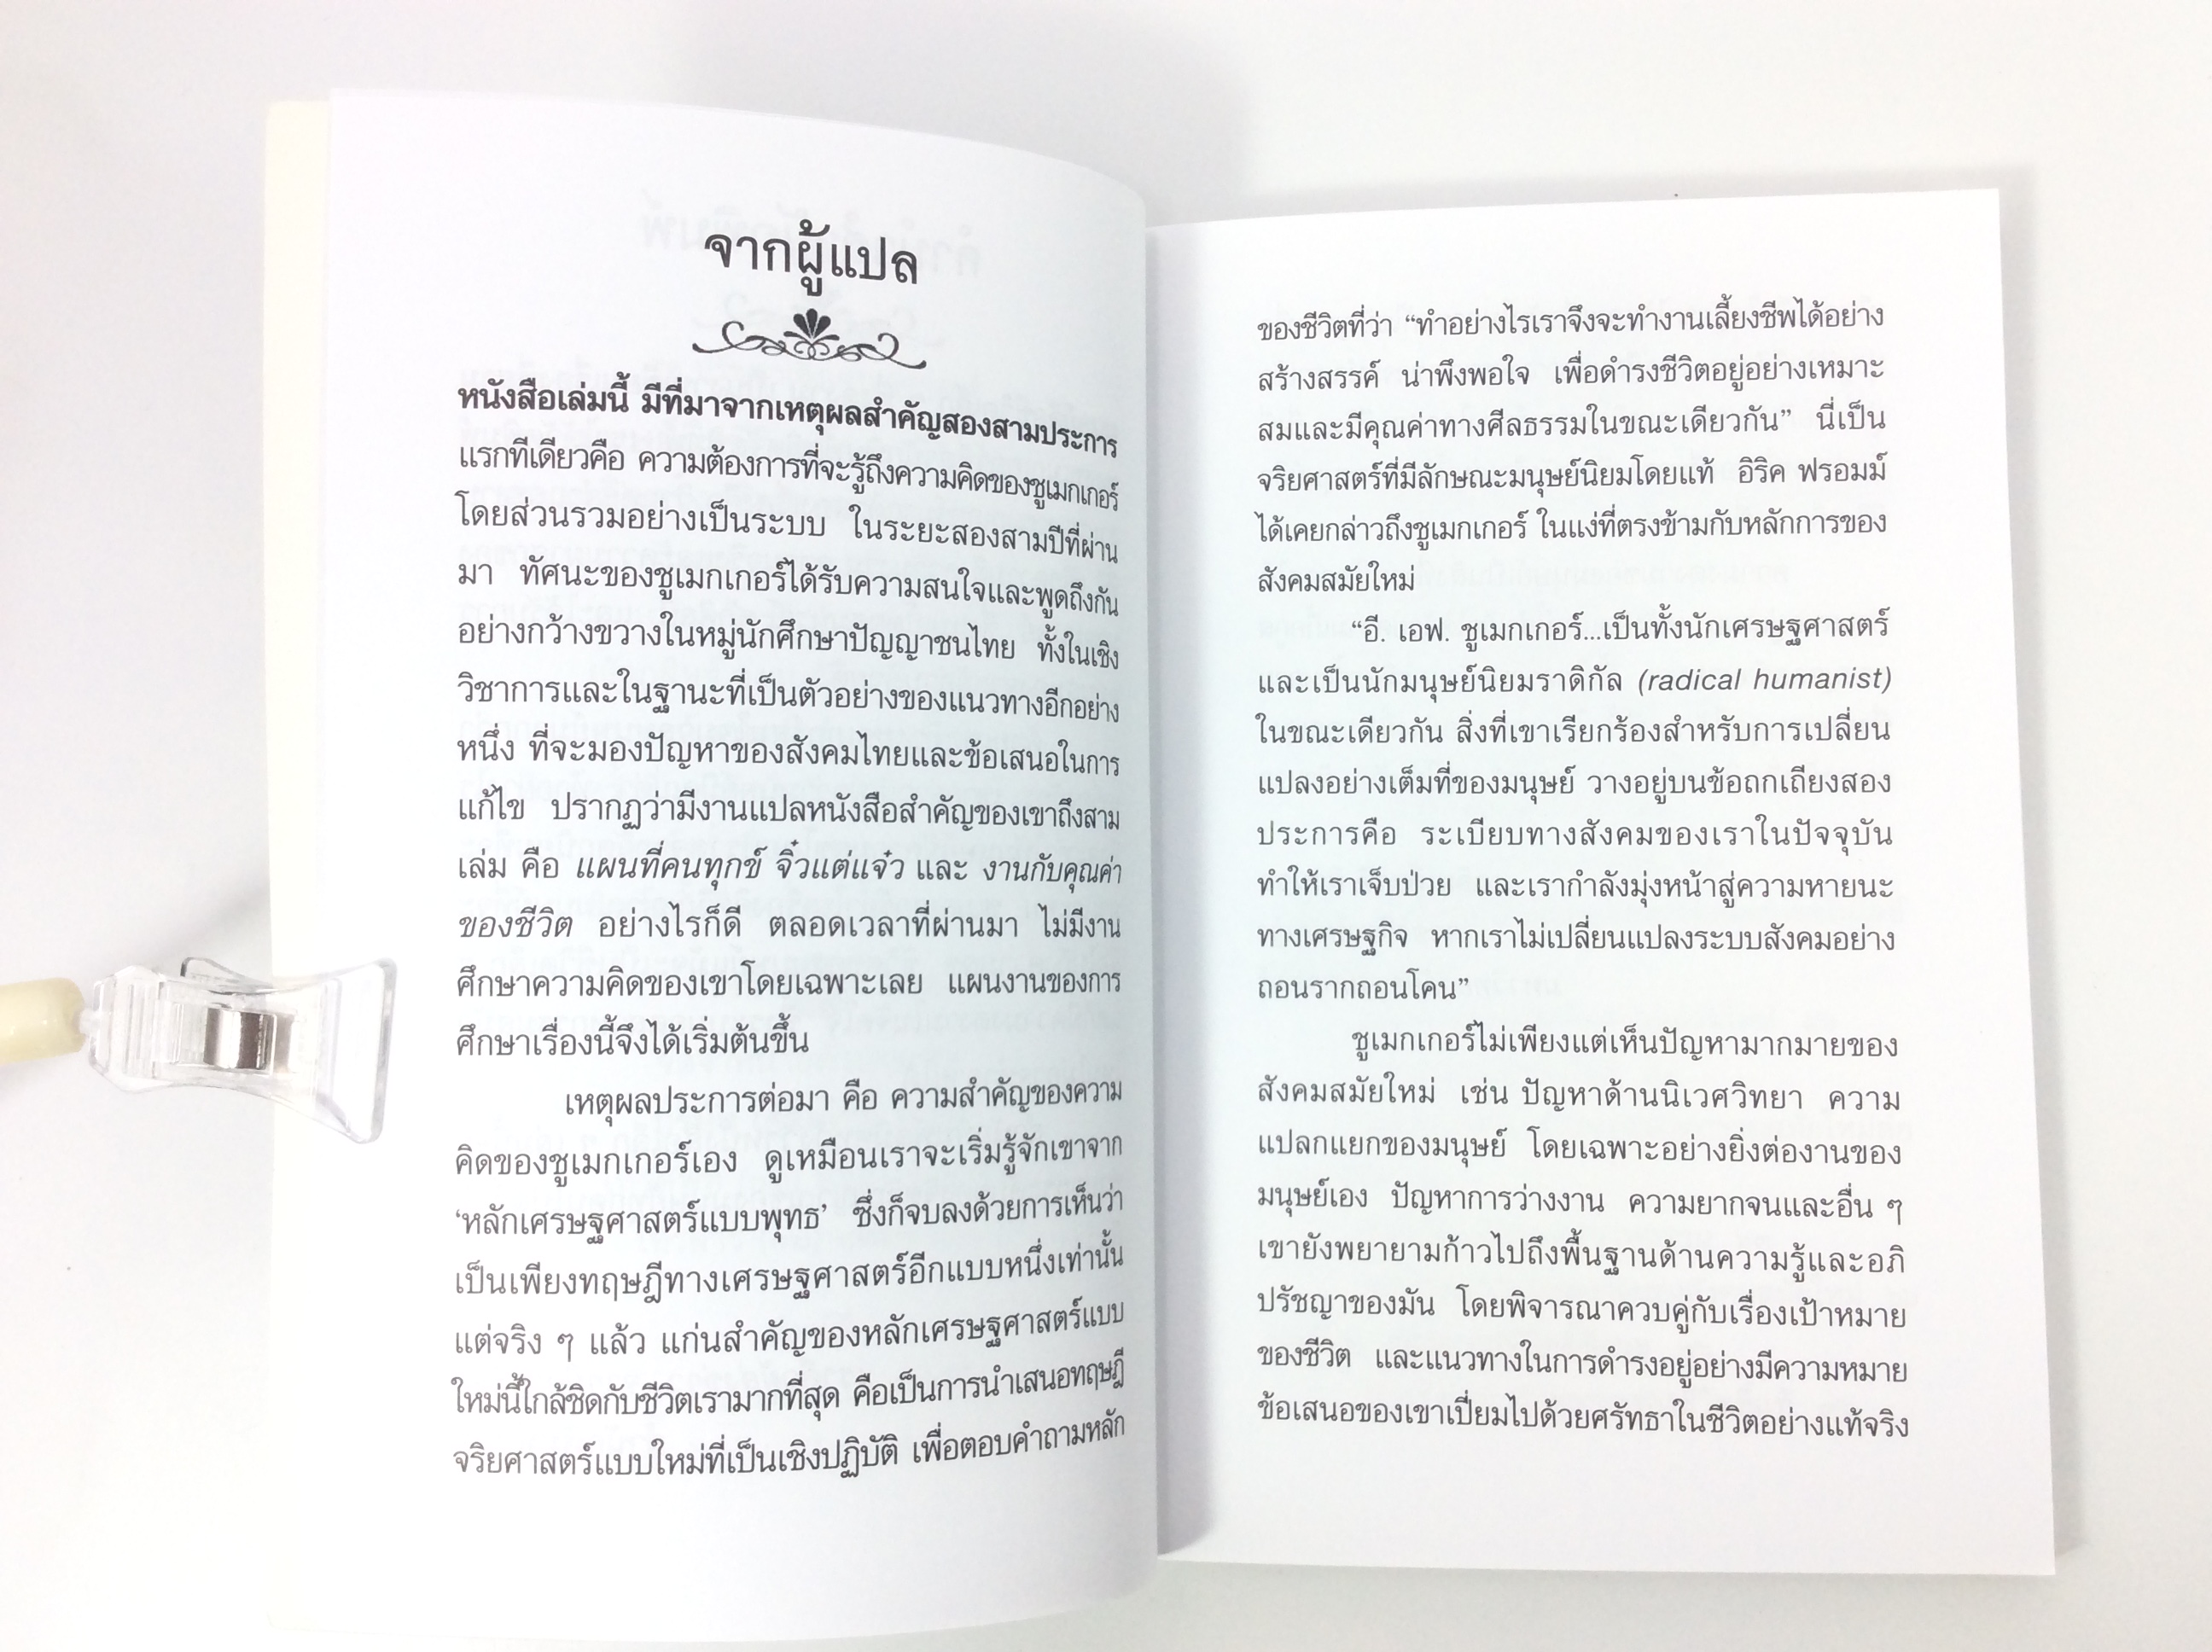 จากผู้แปล
หนังสือเล่มนี้ มีที่มาจากเหตุผลสำคัญสองสามประการ
แรกทีเดียวคือ ความต้องการที่จะรู้ถึงความคิดของชูเมกเกอร์
โดยส่วนรวมอย่างเป็นระบบ ในระยะสองสามปีที่ผ่าน
มา ทัศนะของชูเมกเกอร์ได้รับความสนใจและพูดถึงกัน
อย่างกว้างขวางในหมู่นักศึกษาปัญญาชนไทย ทั้งในเชิง
วิชาการและในฐานะที่เป็นตัวอย่างของแนวทางอีกอย่าง
หนึ่ง ที่จะมองปัญหาของสังคมไทยและข้อเสนอในการ
แก้ไข ปรากฏว่ามีงานแปลหนังสือสำคัญของเขาถึงสาม
เล่ม คือ แผนที่คนทุกข์ จิ๋วแต่แจ๋ว และ งานกับคุณค่า
ของชีวิต อย่างไรก็ดี ตลอดเวลาที่ผ่านมา ไม่มีงาน
ศึกษาความคิดของเขาโดยเฉพาะเลย แผนงานของการ
ศึกษาเรื่องนี้จึงได้เริ่มต้นขึ้น
เหตุผลประการต่อมา คือ ความสำคัญของความ
คิดของชูเมกเกอร์เอง ดูเหมือนเราจะเริ่มรู้จักเขาจาก
‘หลักเศรษฐศาสตร์แบบพุทธ’ ซึ่งก็จบลงด้วยการเห็นว่า
เป็นเพียงทฤษฎีทางเศรษฐศาสตร์อีกแบบหนึ่งเท่านั้น
แต่จริง ๆ แล้ว แก่นสำคัญของหลักเศรษฐศาสตร์แบบ
ใหม่นี้ใกล้ชิดกับชีวิตเรามากที่สุด คือเป็นการนำเสนอทฤษฎี
จริยศาสตร์แบบใหม่ที่เป็นเชิงปฏิบัติ เพื่อตอบคำถามหลัก
ของชีวิตที่ว่า “ทำอย่างไรเราจึงจะทำงานเลี้ยงชีพได้อย่าง
สร้างสรรค์ น่าพึงพอใจ เพื่อดำรงชีวิตอยู่อย่างเหมาะ
สมและมีคุณค่าทางศีลธรรมในขณะเดียวกัน” นี่เป็น
จริยศาสตร์ที่มีลักษณะมนุษย์นิยมโดยแท้ อิริค ฟรอมม์
ได้เคยกล่าวถึงชูเมกเกอร์ ในแง่ที่ตรงข้ามกับหลักการของ
สังคมสมัยใหม่
“อี. เอฟ. ชูเมกเกอร์...เป็นทั้งนักเศรษฐศาสตร์
และเป็นนักมนุษย์นิยมราดิกัล (radical humanist)
ในขณะเดียวกัน สิ่งที่เขาเรียกร้องสำหรับการเปลี่ยน
แปลงอย่างเต็มที่ของมนุษย์ วางอยู่บนข้อถกเถียงสอง
ประการคือ ระเบียบทางสังคมของเราในปัจจุบัน
ทำให้เราเจ็บป่วย และเรากำลังมุ่งหน้าสู่ความหายนะ
ทางเศรษฐกิจ หากเราไม่เปลี่ยนแปลงระบบสังคมอย่าง
ถอนรากถอนโคน”
ชูเมกเกอร์ไม่เพียงแต่เห็นปัญหามากมายของ
สังคมสมัยใหม่ เช่น ปัญหาด้านนิเวศวิทยา ความ
แปลกแยกของมนุษย์ โดยเฉพาะอย่างยิ่งต่องานของ
มนุษย์เอง ปัญหาการว่างงาน ความยากจนและอื่น ๆ
เขายังพยายามก้าวไปถึงพื้นฐานด้านความรู้และอภิ
ปรัชญาของมัน โดยพิจารณาควบคู่กับเรื่องเป้าหมาย
ของชีวิต และแนวทางในการดำรงอยู่อย่างมีความหมาย
ข้อเสนอของเขาเปี่ยมไปด้วยศรัทธาในชีวิตอย่างแท้จริง